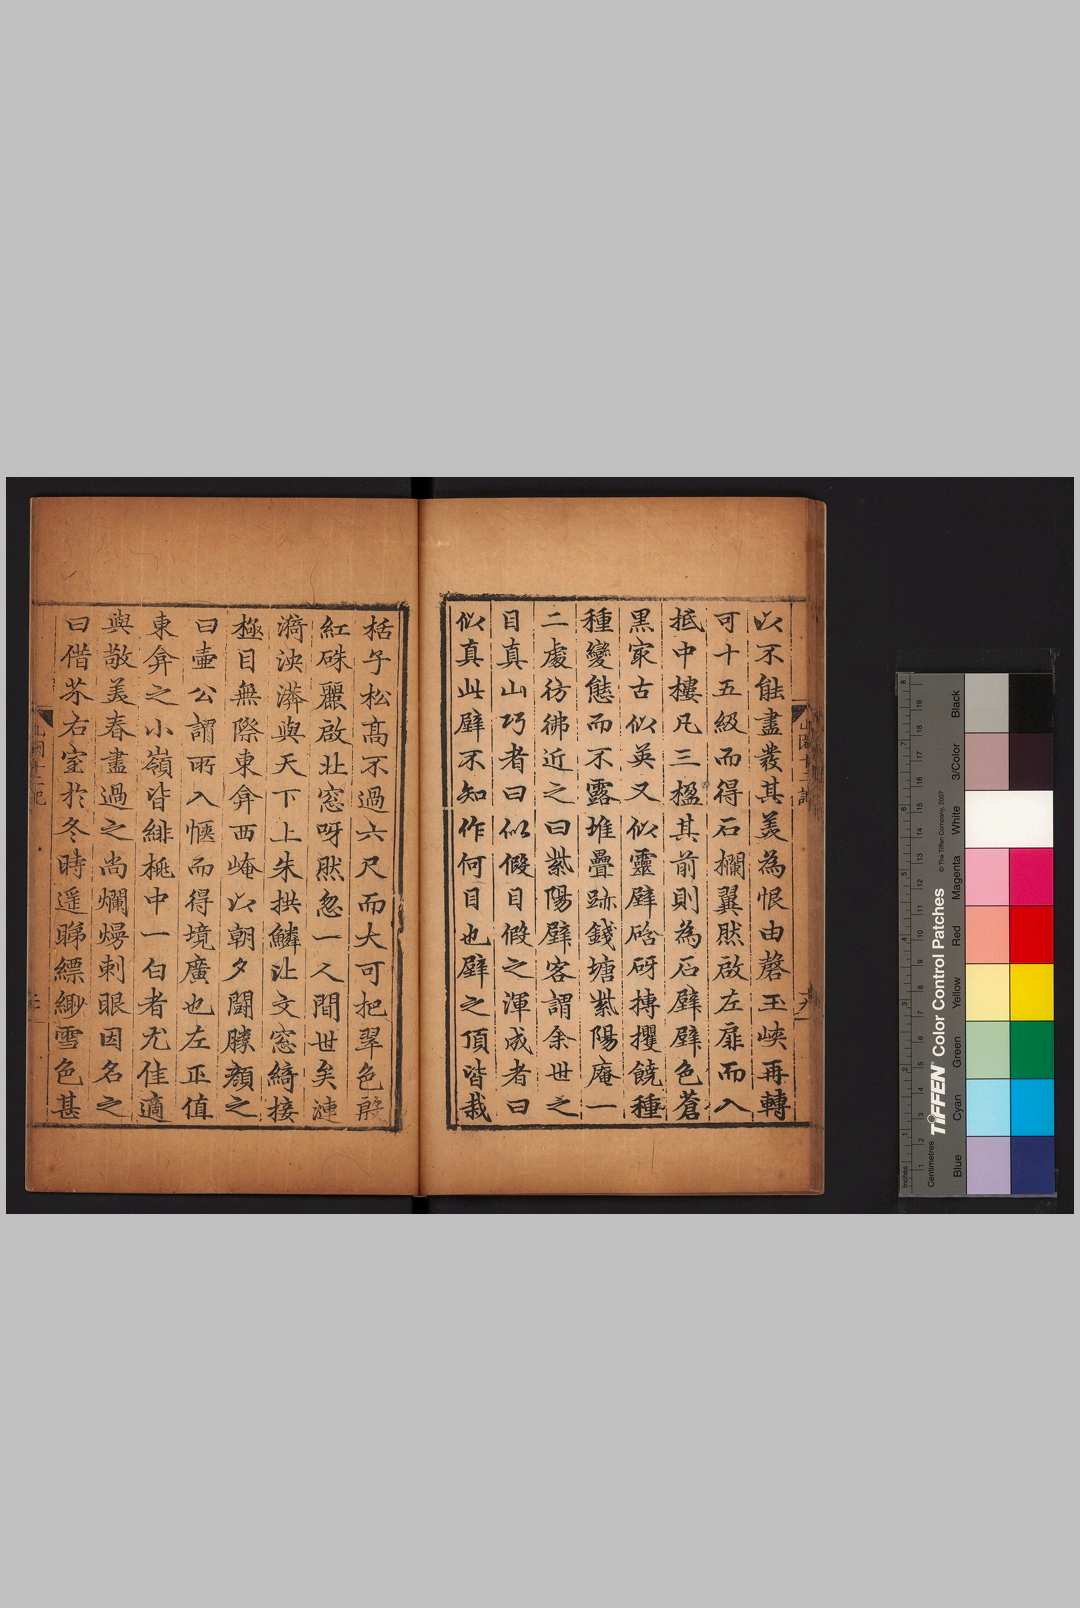 以不能盡發其美為恨由磬玉峽再轉
可十五級而得石欄翼然啟左扉而入
抵中樓凡三楹其前則為石壁壁色蒼
黑㝡古似英又似靈壁硌砑摶攫饒種
種變態而不露堆疊跡錢塘紫陽庵一
二處彷彿近之曰紫陽壁客謂余世之
目真山巧者曰似假目假之渾成者曰
似真此壁不知作何目也壁之頂皆栽
栝子松高不過六尺而大可把翠色殷
紅硃麗啟北窓呀然忽一人間世矣漣
漪泱漭與天下上朱拱鱗比文窓綺接
極目無際東弇西崦以朝夕鬬勝顏之
曰壺公謂所入愜而得境廣也左正值
東弇之小嶺皆緋桃中一白者尤佳適
與敬美春盡過之尚爛熳刺眼因名之
曰借芬右室於冬時遥睇縹緲雪色甚
山園
Black
3/Color
White
Magenta
Red
Yellow
Green
Cyan
Blue
TIFFEN Color Control Patches
© The Tiffen Company, 2007
Centimetres
Inches